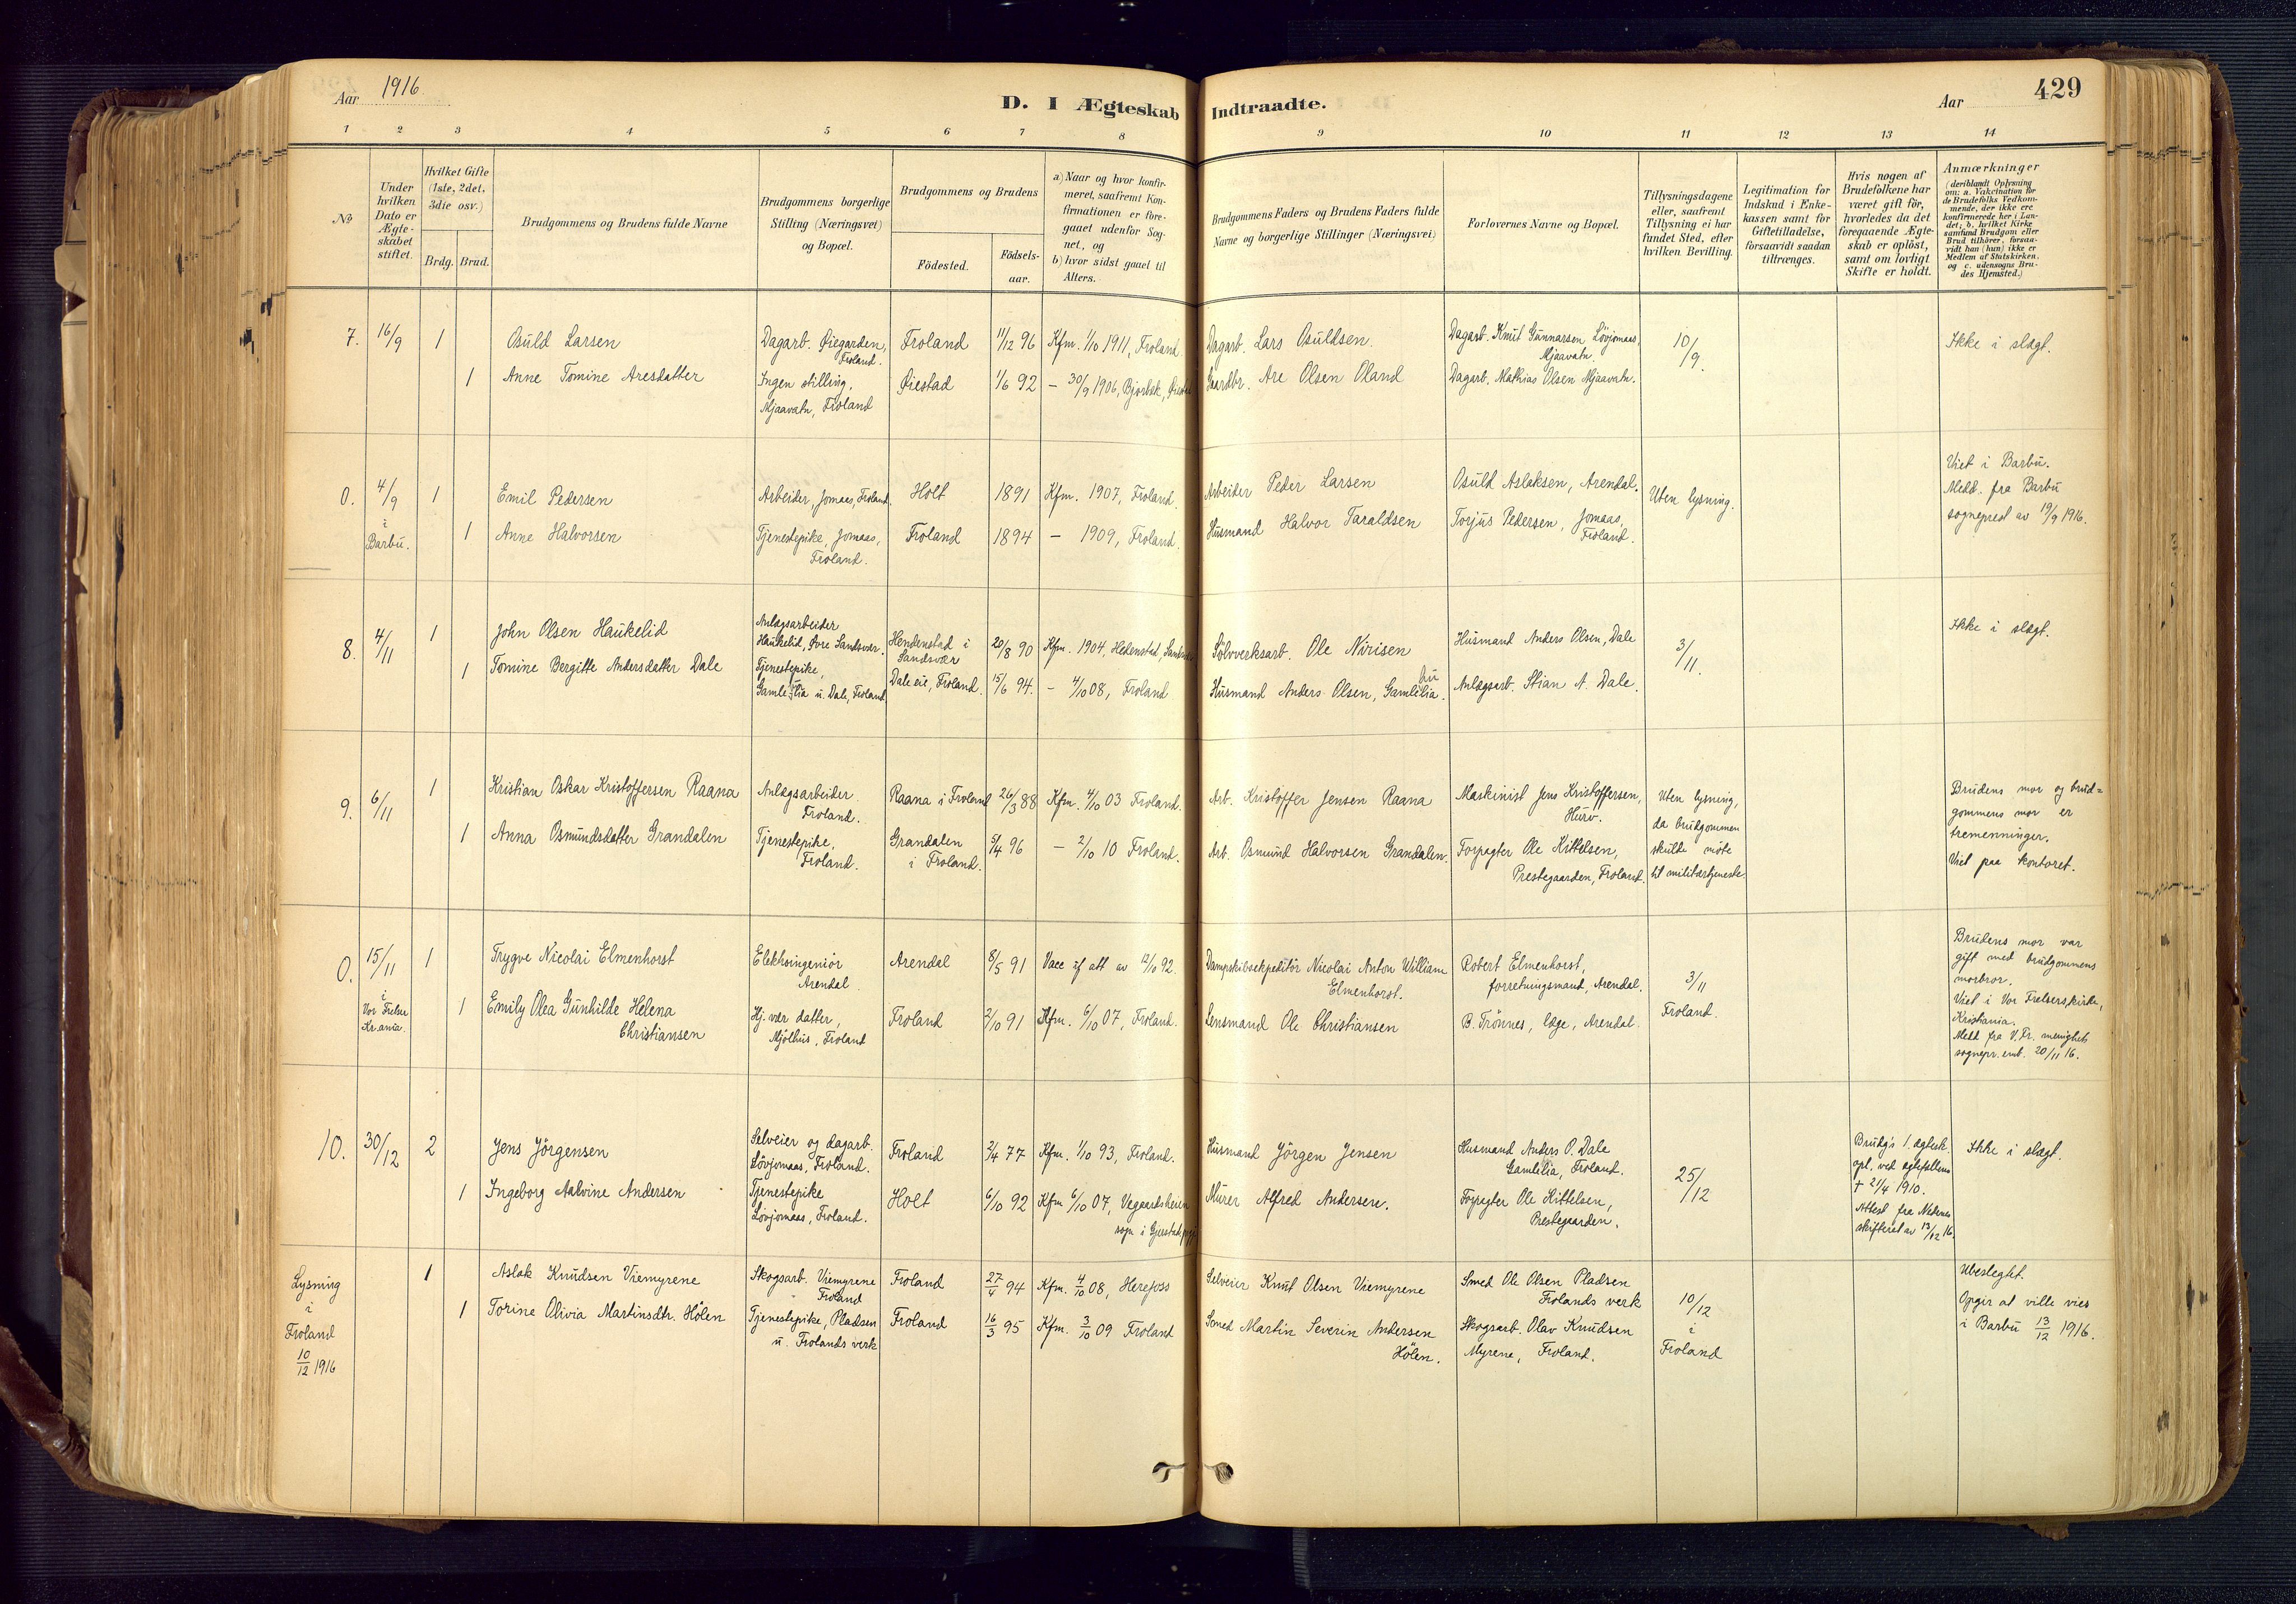 Aar 1916.
D. I Ægteskab Indtraadte.
Aar
429
1 2 3 4 5 6 7 8 9 10 11 12 13 14
No
Under hvilken Dato er Ægteskabet stiftet.
Hvilket Gifte (1ste, 2det, 3die osv.)
Brdg. Brud.
Brudgommens og Brudens fulde Navne
Brudgommens borgerlige Stilling (Næringsvei) og Bopæl.
Brudgommens og Brudens
Födested.
Födsels-aar.
a) Naar og hvor konfir-
meret, saafremt Kon-
firmationen er fore-
gaaet udenfor Sog-
net, og
b) hvor sidst gaaet til
Alters.
Brudgommens Faders og Brudens Faders fulde
Navne og borgerlige Stillinger (Næringsvei)
Forlovernes Navne og Bopæl.
Tillysningsdagene
eller, saafremt
Tillysning ei har
fundet Sted, efter
hvilken Bevilling.
Legitimation for
Indskud i Enke-
kassen samt for
Giftetilladelse,
forsaavidt saadan
tiltrænges.
Hvis nogen af
Brudefolkene har
været gift för,
hvorledes da det
foregaaende Ægte-
skab er oplöst,
samt om lovligt
Skifte er holdt.
Anmærkninger
(deriblandt Oplysning
om: a. Vakcination for
de Brudefolks Vedkom-
mende, der ikke ere
konfirmerede her i Lan-
det; b. hvilket Kirke-
samfund Brudgom eller
Brud tilhörer, forsaa-
vidt han (hun) ikke er
Medlem af Statskirken,
og c. udensogns Bru-
des Hjemsted.)
7. 16/9 1 Osuld Larsen
Dagarb. Øiegarden, Froland.
Froland 11/12 96 Kfm. 1/10 1911, Froland.
Dagarb. Lars Osuldsen.
Dagarb. Knut Gunnarsen Lövjomaas, Mjaavatn.
10/9.
Ikke i slægt.
1 Anne Tomine Aresdatter
Ingen stilling, Mjaavatn, Froland
Øiestad 1/6 92 — 30/9 1906, Bjorbek,
Gaardbr. Are Olsen Oland
Dagarb. Mathias Olsen Mjaavatn.
0. 4/9 i Barbu. 1 Emil Pedersen
Arbeider, Jomaas, Froland.
Holt 1891 Kfm. 1907, Froland.
Arbeider Peder Larsen
Osuld Aslaksen, Arendal.
Uten lysning.
Viet i Barbu.
Medd. fra Barbu
sogneprest av 19/9 1916.
1 Anne Halvorsen
Tjenestepike, Jomaas, Froland.
Froland 1894 — 1909, Froland.
Husmand Halvor Taraldsen
Torjus Pedersen, Jomaas, Froland.
8. 4/11 1 John Olsen Haukelid
Anlægsarbeider
Haukelid, Øvre Sandsvær.
Hendenstad i Sandsvær
20/8 90 Kfm. 1904, Hedenstad,
Sölvverksarb. Ole Nirisen
Husmand Anders Olsen, Dale
3/11.
Ikke i slægt.
1 Tomine Bergitte Andersdatter Dale
Tjenestepike,
Gamlelia u. Dale, Froland
Dale eie, Froland. 15/6 94. — 4/10 08, Froland
Husmand Anders Olsen, Gamlelia.
Anlægsarb. Stian A. Dale.
9. 6/11 1 Kristian Oskar Kristoffersen Raana
Anlægsarbeider Froland.
Raana i Froland 26/3 88 Kfm. 4/10 03 Froland.
Arb. Kristoffer Jensen Raana
Maskinist Jens Kristoffersen, Hurv.
Uten lysning,
da brudgommen
skulde møte
til militærtjeneste.
Brudens mor og brud=
gommens mor er
tremenninger.
Viet paa kontoret.
1 Anna Osmundsdatter Grandalen
Tjenestepike, Froland.
Grandalen i Froland. 5/4 96 — 2/10 10 Froland.
Arb. Osmund Halvorsen Grandalen.
Forpagter Ole Kittelsen,
Prestegaarden, Froland.
0. 15/11 i Vor Frelser Kr.ania. 1 Trygve Nicolai Elmenhorst
Elektroingeniør Arendal.
Arendal 8/5 91 Vacc if att av 12/10 92.
Dampskibsekspeditör Nicolai Anton William Elmenhorst.
Robert Elmenhorst,
forretningsmand, Arendal.
3/11 Froland.
Brudens mor var
gift med brudgommens
morbror.
Viet i Vor Frelserskirke,
Kristiania.
Medd fra V. Fr. menighets
sognepr. emb. 20/11 16.
1 Emily Olea Gunhilde Helena Christiansen
Hj. vær datter,
Mjölhus, Froland
Froland 2/10 91 Kfm. 6/10 07, Froland.
Lensmand Ole Christiansen
B. Trönnes, læge, Arendal.
10. 30/12 2 Jens Jörgensen
Selveier og dagarb.
Lövjomaas, Froland.
Froland 2/4 77 Kfm. 1/10 93, Froland.
Husmand Jörgen Jensen
Husmand Anders O. Dale
Gamlelia, Froland.
25/12
Brudg's 1. ægtesk.
opl. ved ægtefællens
† 21/4 1910.
Attest fra Nedenes
skifteret av 13/12 16.
Ikke i slægt.
1 Ingeborg Aalvine Andersen
Tjenestepike
Lövjomaas, Froland.
Holt 6/10 92 Kfm 6/10 07, Vegaardsheien
sogn i Gjerstad
Murer Alfred Andersen.
Forpagter Ole Kittelsen,
Prestegaarden.
Lysning i Froland 10/12 1916
1 Aslak Knudsen Viemyrene
Skogsarb. Viemyrene Froland
Froland 27/4 94 Kfm. 4/10 08, Herefoss
Selveier Knut Olsen Viemyrene
Smed Ole Olsen Pladsen
Frolands verk
10/12 i Froland
Ubeslegtet.
Opgir at ville vies
i Barbu 13/12 1916.
1 Torine Olivia Martinsdtr. Hölen
Tjenestepike, Pladsen
u. Frolands verk
Froland 16/3 95 Kfm. 3/10 09 Froland
Smed Martin Severin Andersen Hölen.
Skogsarb. Olav Knudsen
Myrene, Froland.